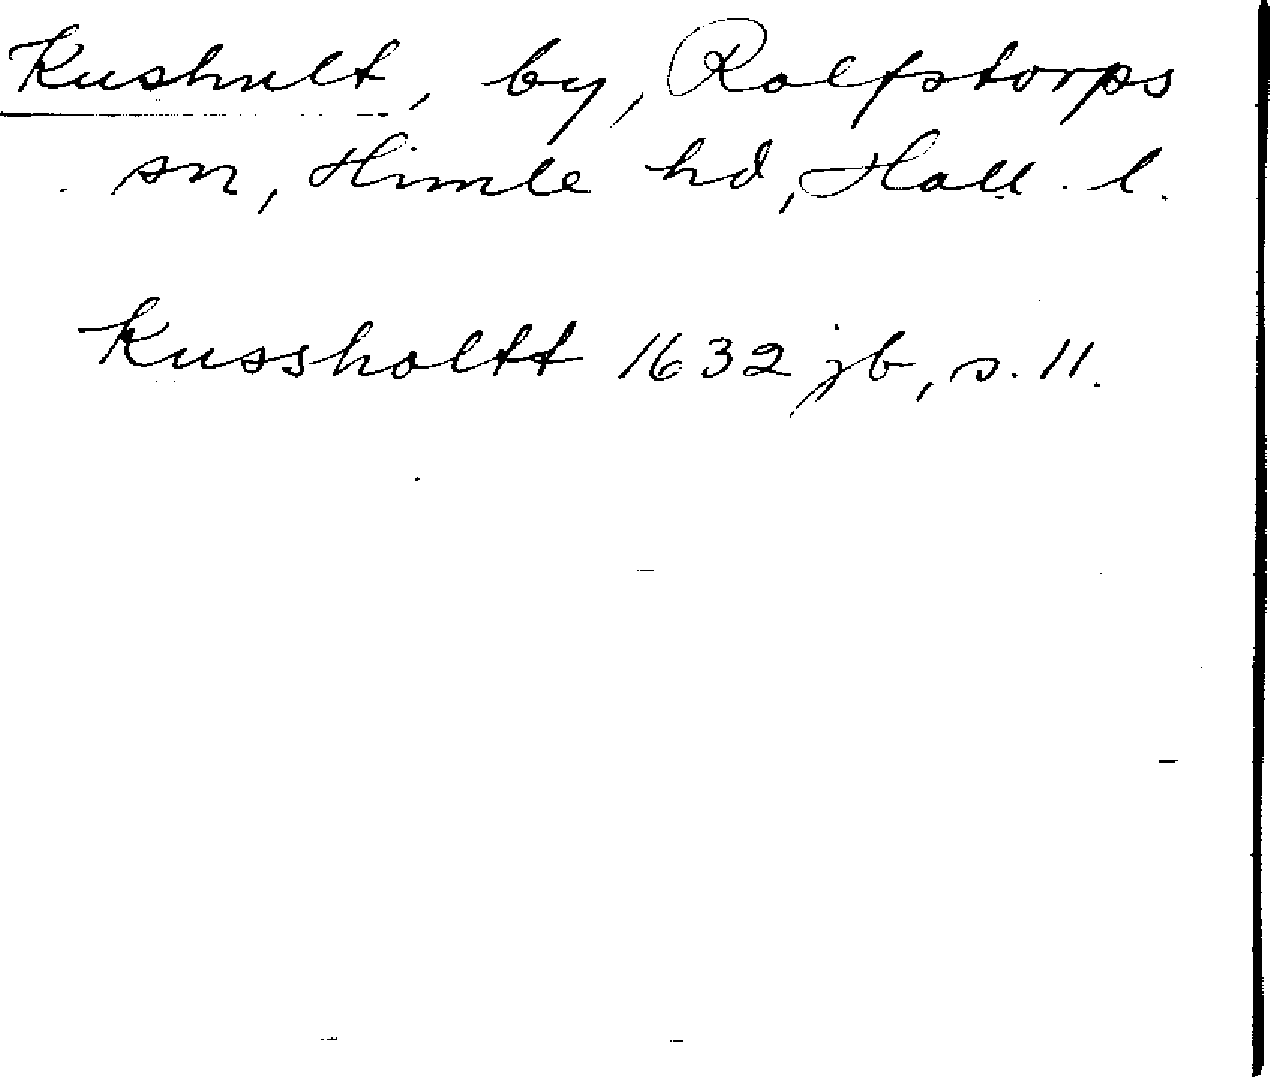 Kushult, by, Rolfstorps
sn, Himle hd, Hall. l.
Kussholtt 1632 jb, s. 11.